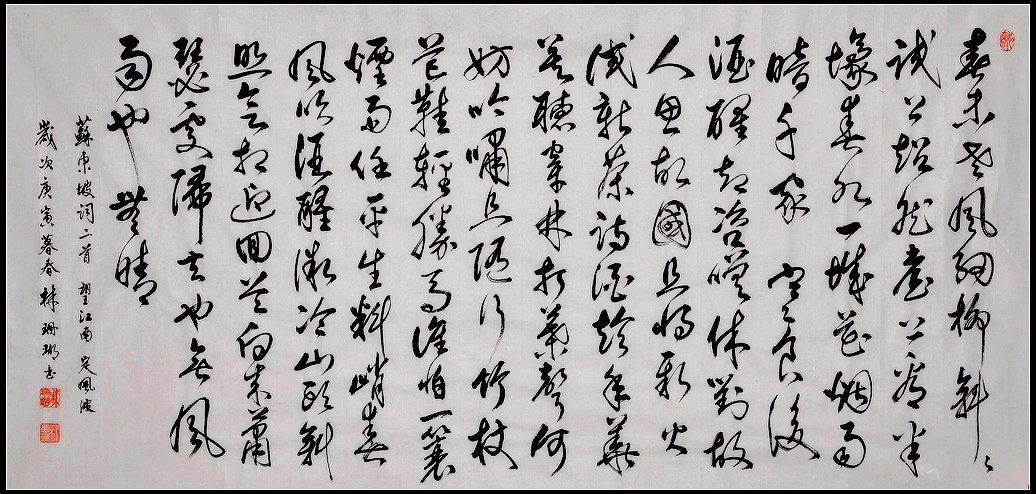 春未老風細柳斜〻
試上超然臺上看半
壕春水一城花烟雨
暗千家 寒食後
酒醒却咨嗟休對故
人思故國且將新火
試新茶詩酒趁年華
莫聽穿林打葉聲何
妨吟嘯且徐行竹杖
芒鞋輕勝馬誰怕一蓑
煙雨任平生料峭春
風吹酒醒微冷山頭斜
照却相迎回首向來蕭
瑟處歸去也無風
雨也無晴
蘇東坡詞二首 望江南 定風波
歲次庚寅暮春林珊書